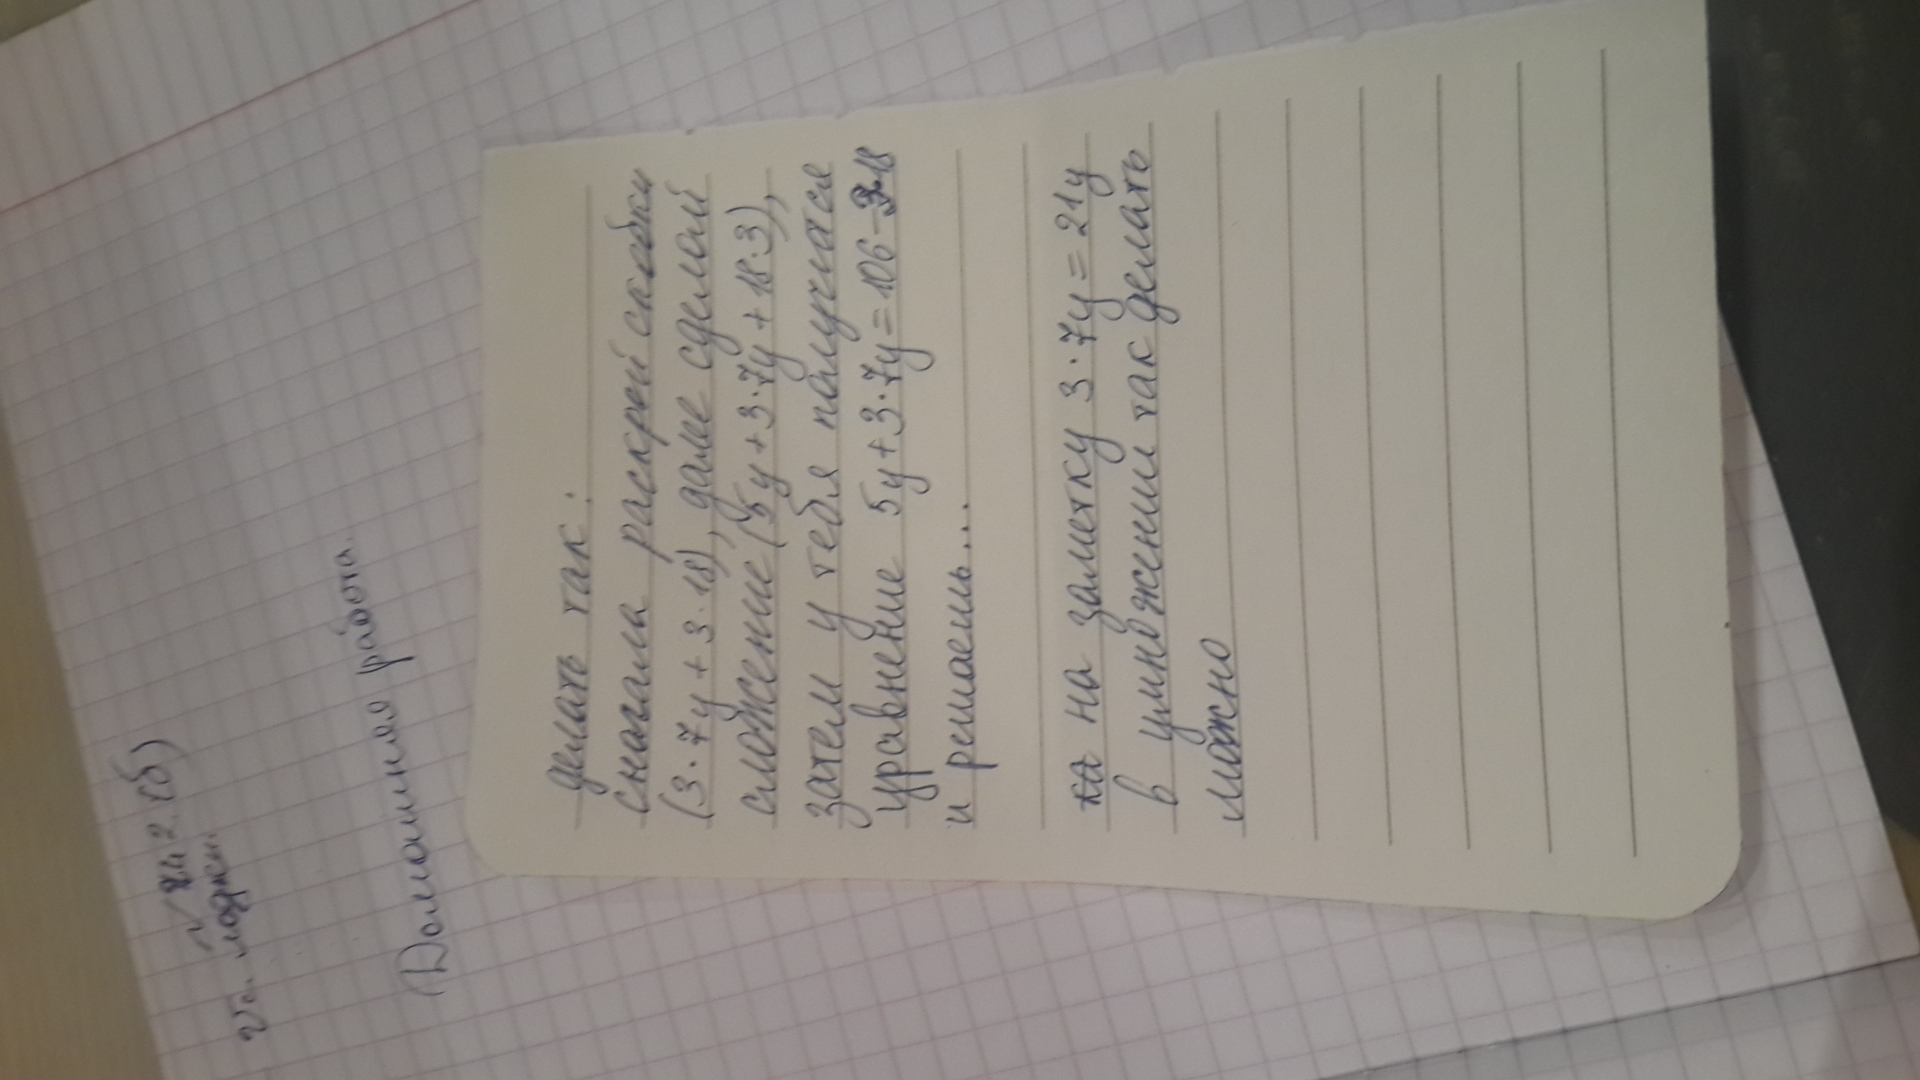 Домашняя работа.
делать так:
сначала раскрей скобки
(3·7у+3·18), далее сделай
сложение (5у+3·7у+18·3),
затем у тебя получился
уравнение 5у+3·7у=106-3·18
и решаешь...
на заметку 3·7у=21у
в умножении так делать
можно